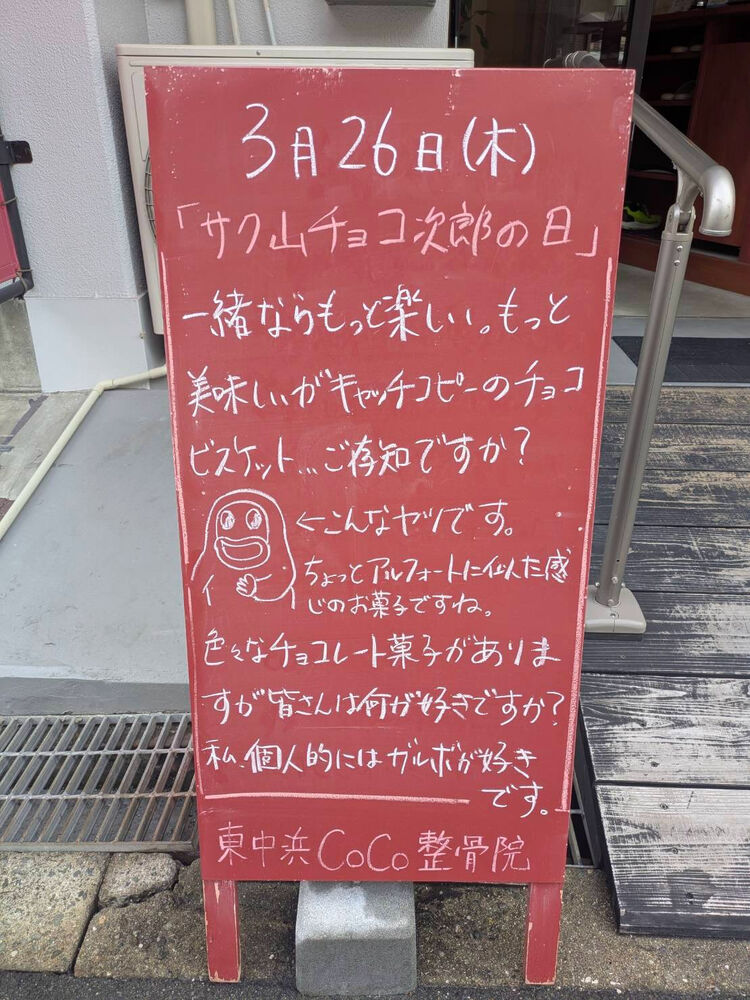 3月26日(木)
「サク山チョコ次郎の日」
一緒ならもっと楽しい。もっと
美味しいがキャッチコピーのチョコ
ビスケット...ご存知ですか?
←こんなヤツです。
ちょっとアルフォートに似た感
じのお菓子ですね。
色々なチョコレート菓子がありま
すが皆さんは何が好きですか?
私、個人的にはガルボが好き
です。
東中浜CoCo整骨院